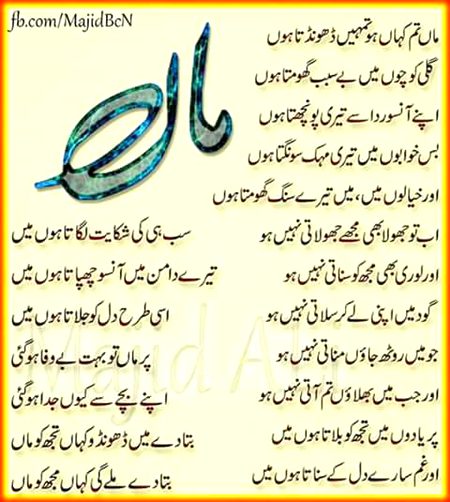 fb.com/MajidBcN
ماں
ماں تم کہاں ہو تمہیں ڈھونڈتا ہوں
گلی کوچوں میں بے سبب گھومتا ہوں
اپنے آنسو ردا سے تیری پونچھتا ہوں
بس خوابوں میں تیری مہک سونگتا ہوں
اور خیالوں میں، میں تیرے سنگ گھومتا ہوں
اب تو جھولا بھی مجھے جھولاتی نہیں ہو
اور لوری بھی مجھ کو سناتی نہیں ہو
گود میں اپنی لے کر سلاتی نہیں ہو
جو میں روٹھ جاؤں مناتی نہیں ہو
اور جب میں بھلاؤں تم آتی نہیں ہو
پر یادوں میں تجھ کو بلاتا ہوں میں
اور غم سارے دل کے سناتا ہوں میں
سب ہی کی شکایت لگاتا ہوں میں
تیرے دامن میں آنسو چھپاتا ہوں میں
اسی طرح دل کو جلاتا ہوں میں
پر ماں تو بہت بے وفا ہو گئی
اپنے بچے سے کیوں جدا ہو گئی
بتا دے میں ڈھونڈو کہاں تجھ کو ماں
بتا دے ملے گی کہاں مجھ کو ماں
Majid Ali